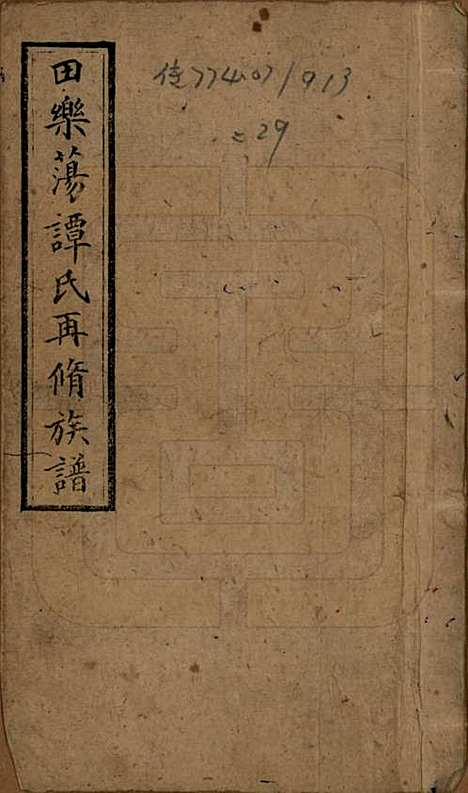 田樂蕩譚氏再脩族譜
77407/913
=29